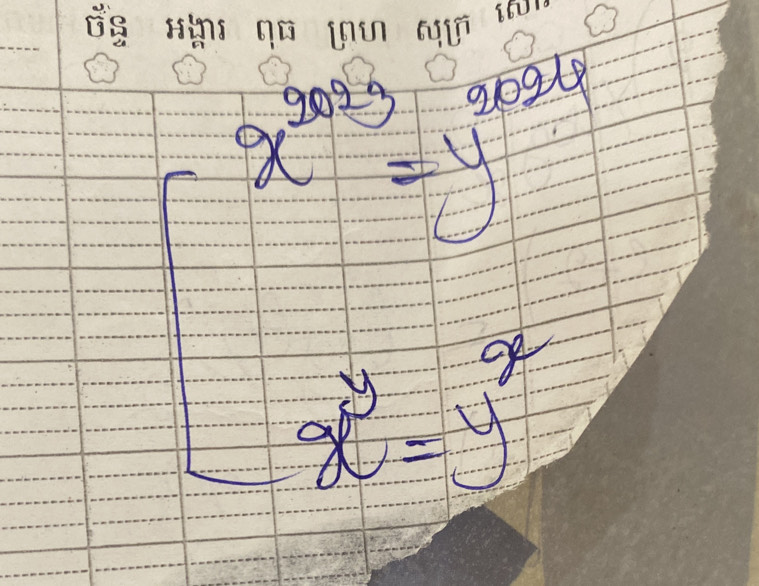 ច័ន្ទ អង្គារ ពុធ ព្រហ សុក្រ សៅរ៍
x^2023 = y^2024
x^y = y^x